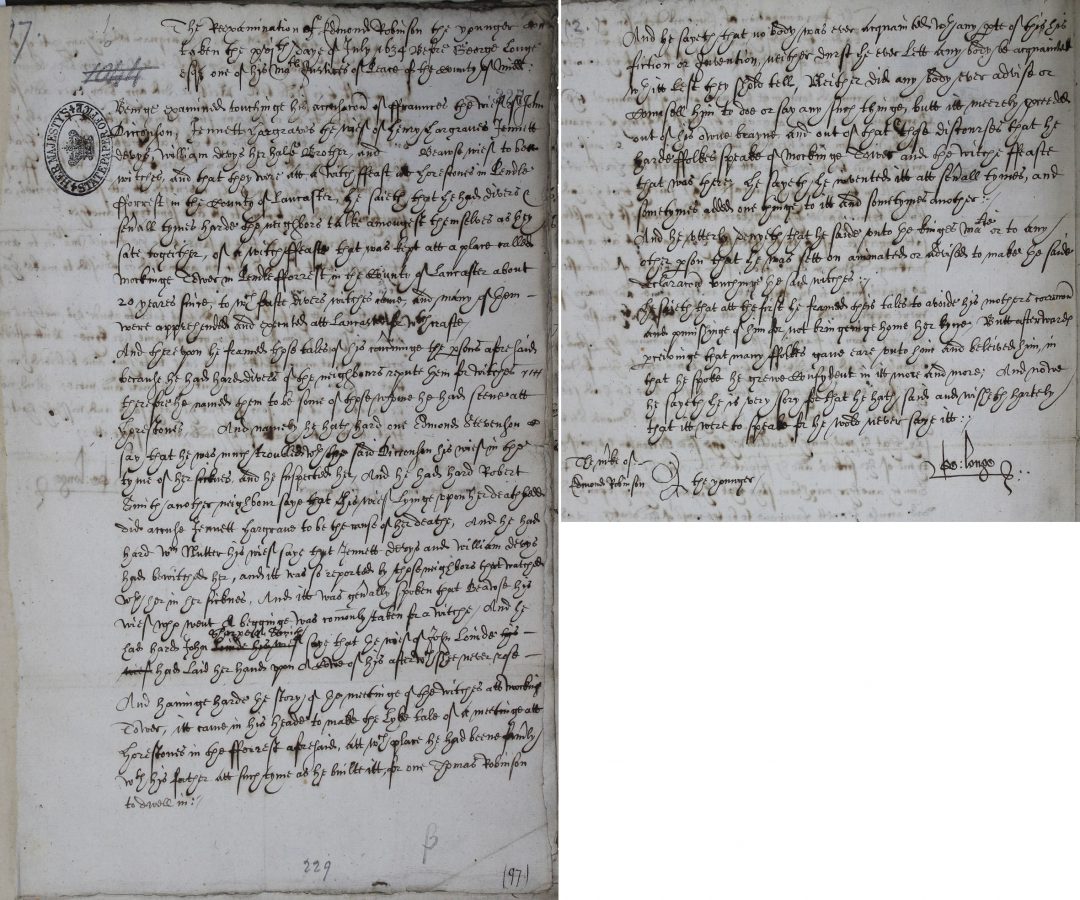 97
The Reexamination of Edmond Robinson the younger
taken the daye of July 1634 Before George Longe
esqr one of his Mats Justices of Peace of the County of Midd:
HER MAJESTY'S STATE PAPER OFFICE
Beinge examined touchinge his accusacon of ffraunces the wief of John
Dicconson, Jennett Hargraves the wief of Henry Hargraves Jennett
devys, William devys her halfe Brother, and Beawse wief to bee
witches, and that they were att a witch ffeast att Horestones in Pendle
fforrest in the County of Lancaster, he saieth that he had divers &
sevall tymes harde the neighbors talke amongest themselves as they
sate together, of a witch ffeaste that was kept att a place called
Mockinge Tower in Pendle fforrest in the County of Lancaster about
20 yeares since, to wch feaste divers witches came, and many of them
were apprehended and executed att Lancaster
And thereupon he framed those tales of his concerninge the psons aforesaid
because he had hard divers of the neighbours repute them for witches
therefore he named them to be some of those whome he had seene att
Horestones And namely he hath hard one Edmond Stevenson
say that he was much troubled wth the said Dicconson his wief in the
tyme of her sicknes, and he suspected her, And he had hard Robert
Smith another neighbour saye that his wief Lyinge upon her death bedd
did accuse Jennett Hargrave to be the cause of her death, And he had
hard Wm Nutter his wief saye that Jennett devys and William devys
had bewitched her, and itt was so reported by those neighbors that watched
wth her in her sicknes, And itt was genally spoken that Beawse his
wief who went a begginge was comonly taken for a witche, And he
had hard John saye that the wief of John Loinde his
had Laid her hands upon a of his after wch she never rose
And havinge harde the story of the meetinge of the witches att Mockinge
Tower, itt came in his heade to make the Lyke tale of a meetinge att
Horestones in the fforrest aforesaid, att wch place he had beene
wth his father att such tyme as he builte itt, for one Thomas Robinson
to dwell in:
β
229
(97)
2.
And he sayeth that no body was ever acquainted wth any pte of this his
fiction or Invention, neither durst he ever Lett any body be acquainted
wth itt Lest they shold tell, Neither did any body ever advise or
Councell him to doe or say any such thinge, butt itt meerely proceeded
out of his owne brayne, and out of those discourses that he
harde ffolkes speake of Mockinge Tower and the witche ffeaste
that was there, he sayeth he invented itt att sevall tymes, and
sometymes added one thinge to itt and sometymes another:
And he utterly denyeth that he saide unto the kinges Matie or to any
other pson that he was sett on animated or advised to make the saide
declaracon touchinge the said witches:
he saieth that att the first he framed this tale to avoide his mothers correccon
and punishinge of him for not bringeinge home her kyne. Butt afterwards
pceivinge that many ffolkes gave eare unto him and beleived him, in
that he spoke he grewe Confydent in itt more and more; And nowe
he sayeth he is very sory ffor that he hath said and wissheth hartely
that itt were to speake for he wold never saye itt:
The mke of
Edmond Robinson the younger
Geo: Longe